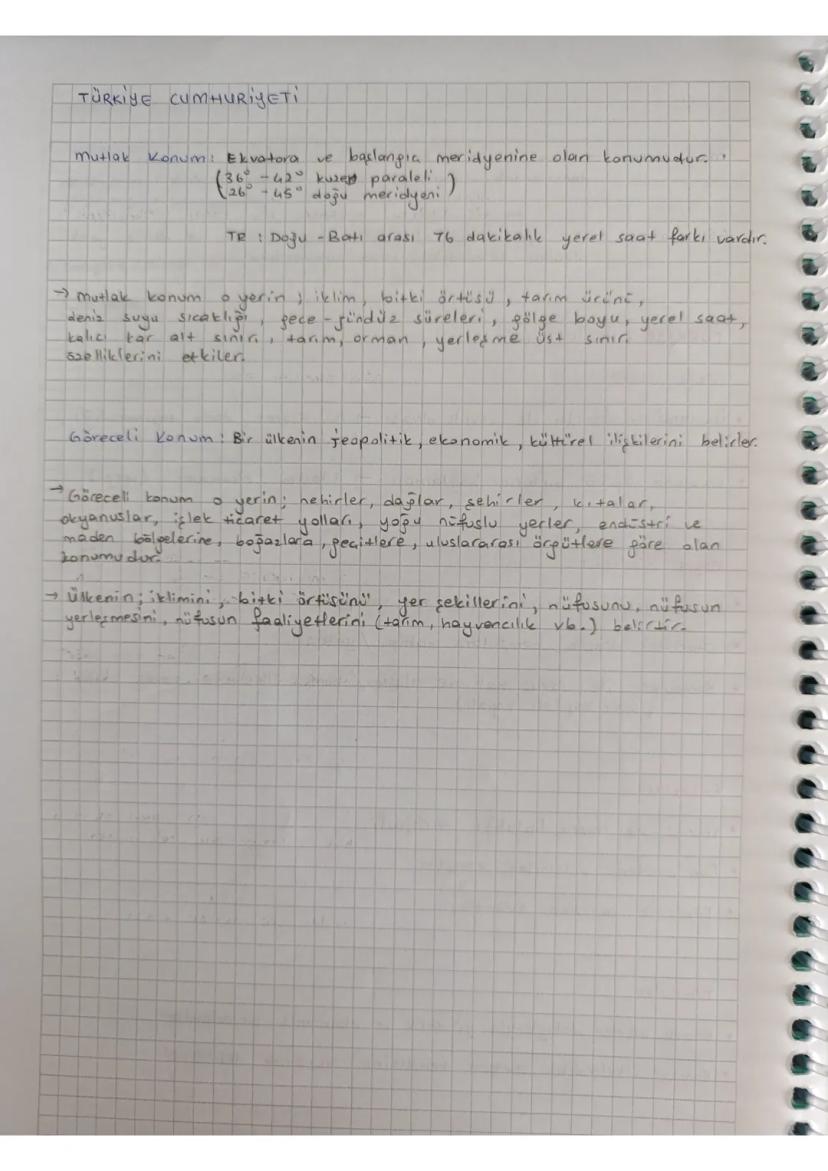 TÜRKİYE CUMHURİYETİ
Mutlak Konum: Ekvatora ve başlangıç meridyenine olan konumudur.
(36° - 42° kuzey paraleli
26° - 45° doğu meridyeni)
TR : Doğu - Batı arası 76 dakikalık yerel saat farkı vardır.
→ Mutlak konum o yerin; iklim, bitki örtüsü, tarım ürünü,
deniz suyu sıcaklığı, gece - gündüz süreleri, gölge boyu, yerel saat,
kalıcı kar alt sınırı, tarım, orman, yerleşme üst sınırı
özelliklerini etkiler.
Göreceli Konum: Bir ülkenin jeopolitik, ekonomik, kültürel ilişkilerini belirler.
→ Göreceli konum o yerin; nehirler, dağlar, şehirler, kıtalar,
okyanuslar, işlek ticaret yolları, yoğu nüfuslu yerler, endüstri ve
maden bölgelerine, boğazlara, geçitlere, uluslararası örgütlere göre olan
konumudur.
→ Ülkenin; iklimini, bitki örtüsünü, yer şekillerini, nüfusunu, nüfusun
yerleşmesini, nüfusun faaliyetlerini (tarım, hayvancılık vb.) belirtir.